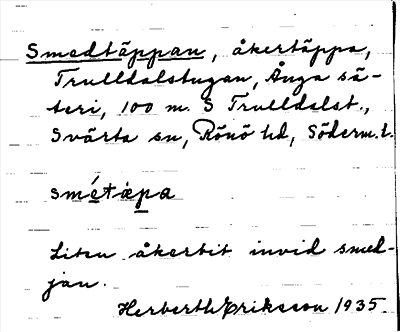 Smedtäppan, åkertäppa,
Trulldalstugan, Ånga sä-
teri, 100 m. S Trulldalst.,
Svärta sn, Rönö hd, Söderm. l.
smétàpa
Liten åkerbit invid smed-
jan.
Herberth Eriksson 1935.